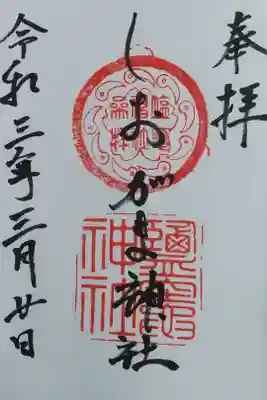 奉拝
しおがま神社
令和三年三月廿日
鹽竈神社